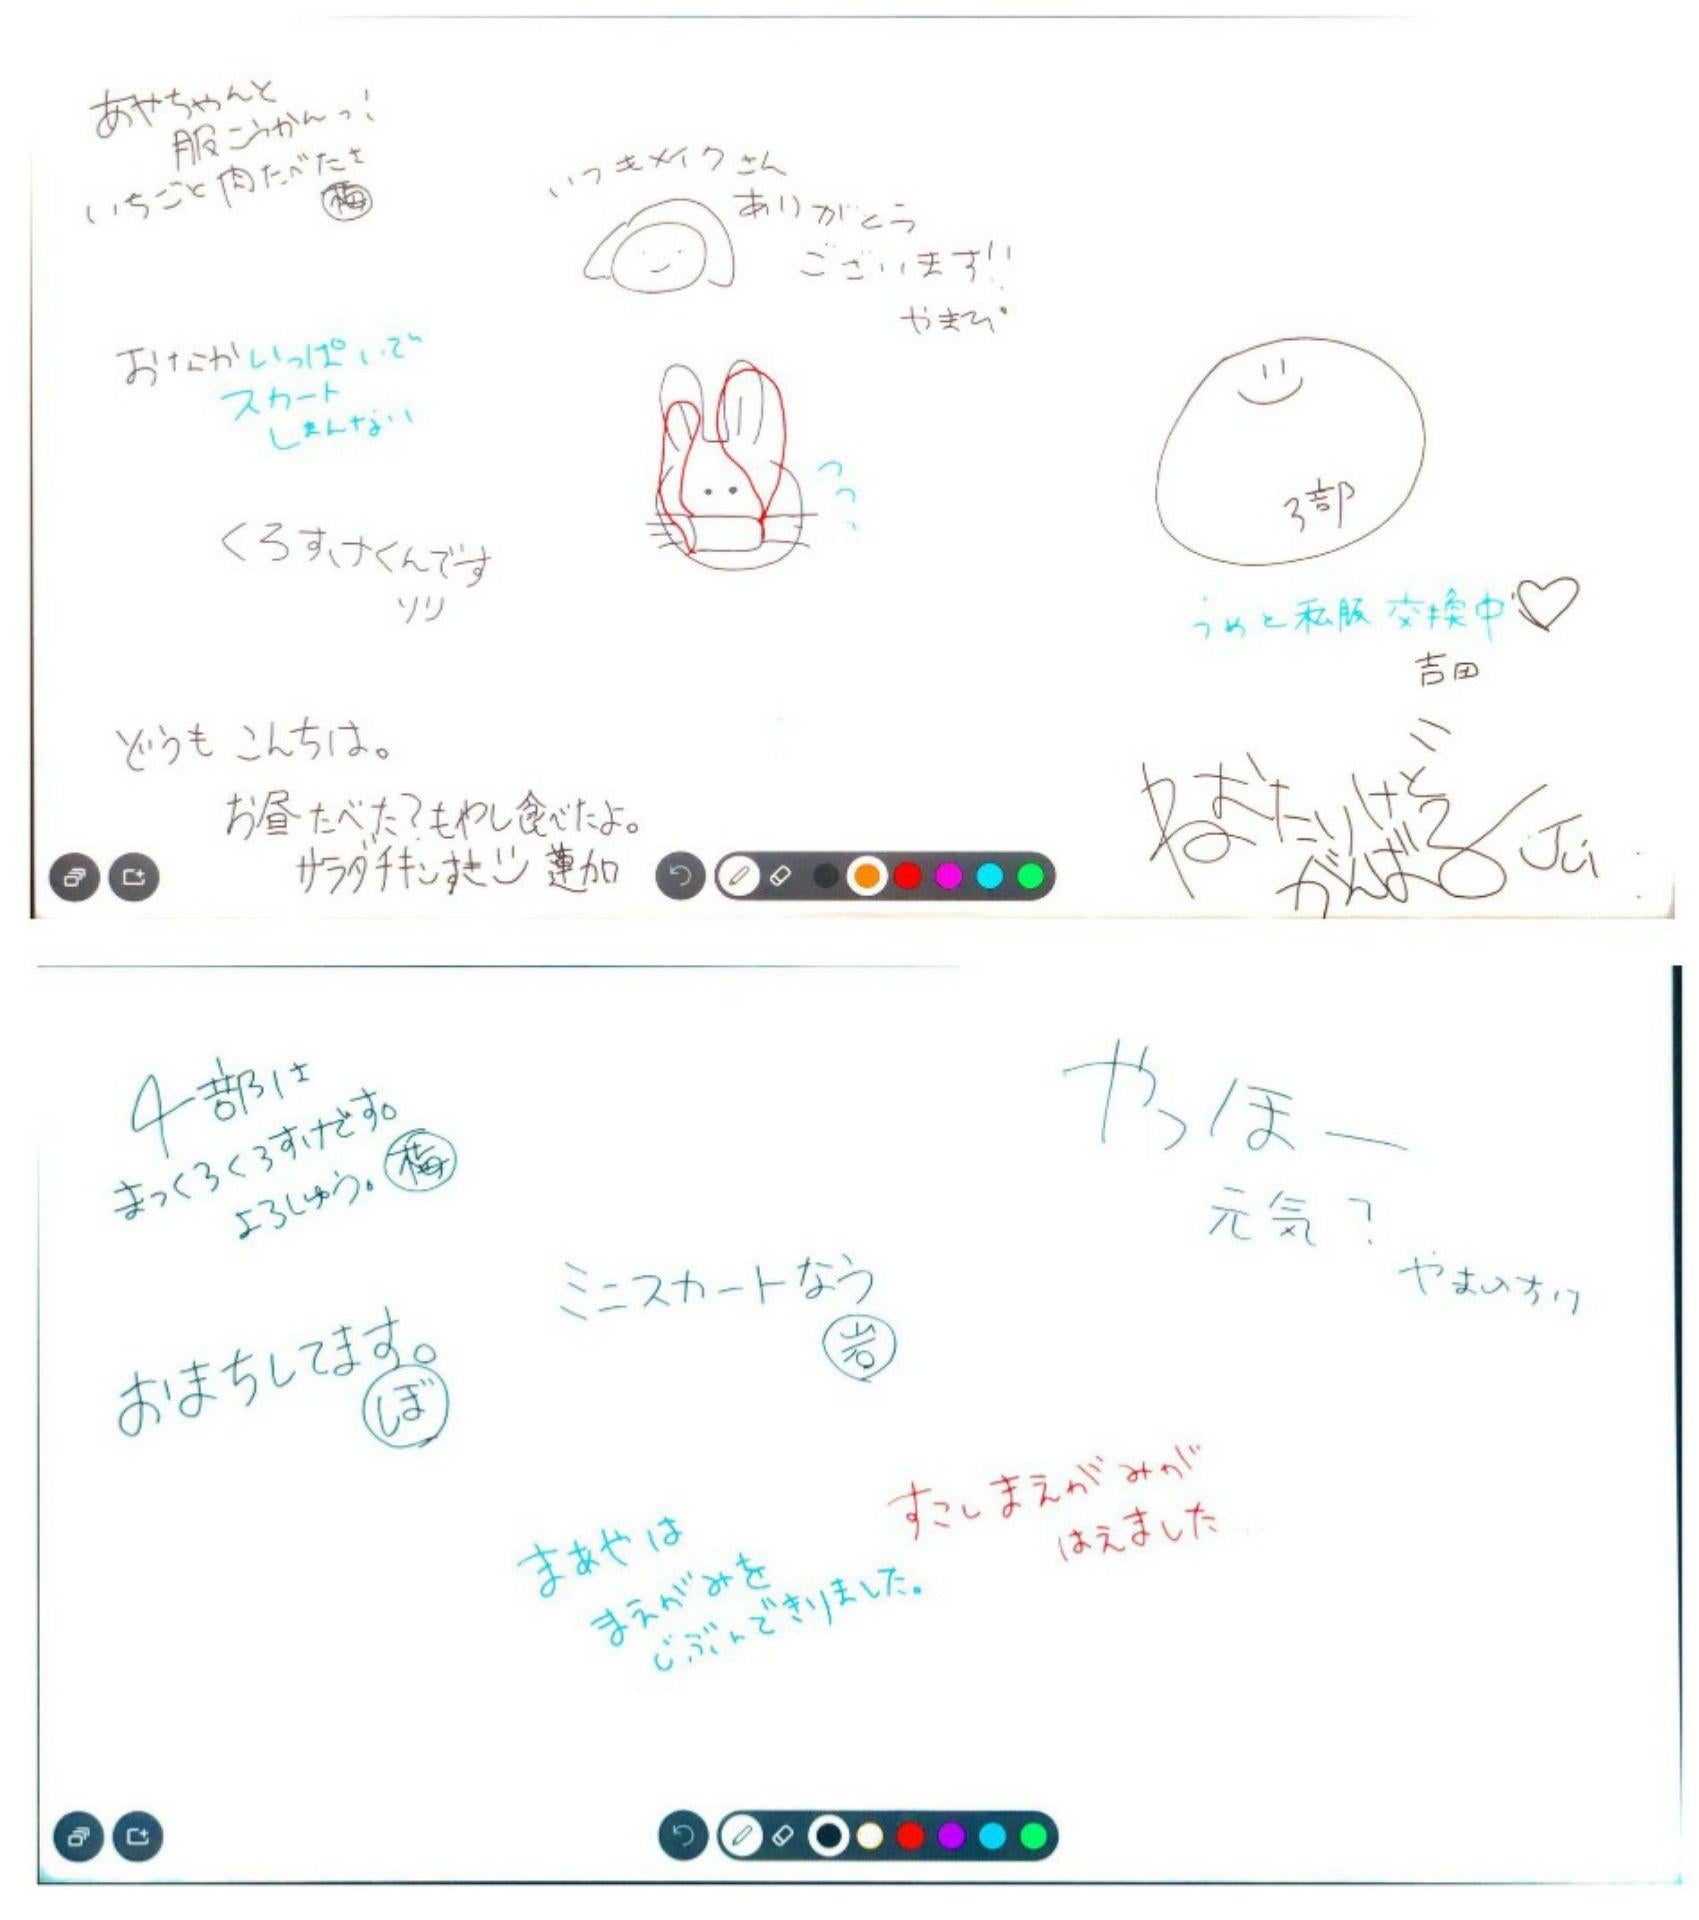 あやちゃんと
服こうかんっ!
いちごと肉たべたさ
梅
いつきメイクさん
ありがとう
ございます!!
やまぴ
おなかいっぱいで
スカート
しまんない
くろすけくんです
ソリ
つつっ
3部
うめと私服交換中♡
吉田
どうも こんちは。
お昼たべた?もやし食べたよ。
サラダチキンすき 蓮加
ねおたりけど
がんばる
Jui
4部は
まっくろくろすけです。
よろしゅう。梅
おまちしてます。
ぼ
ミニスカートなう
岩
やっほー
元気?
すこしまえがみが
はえました…
まあやは
まえがみを
じぶんできりました。